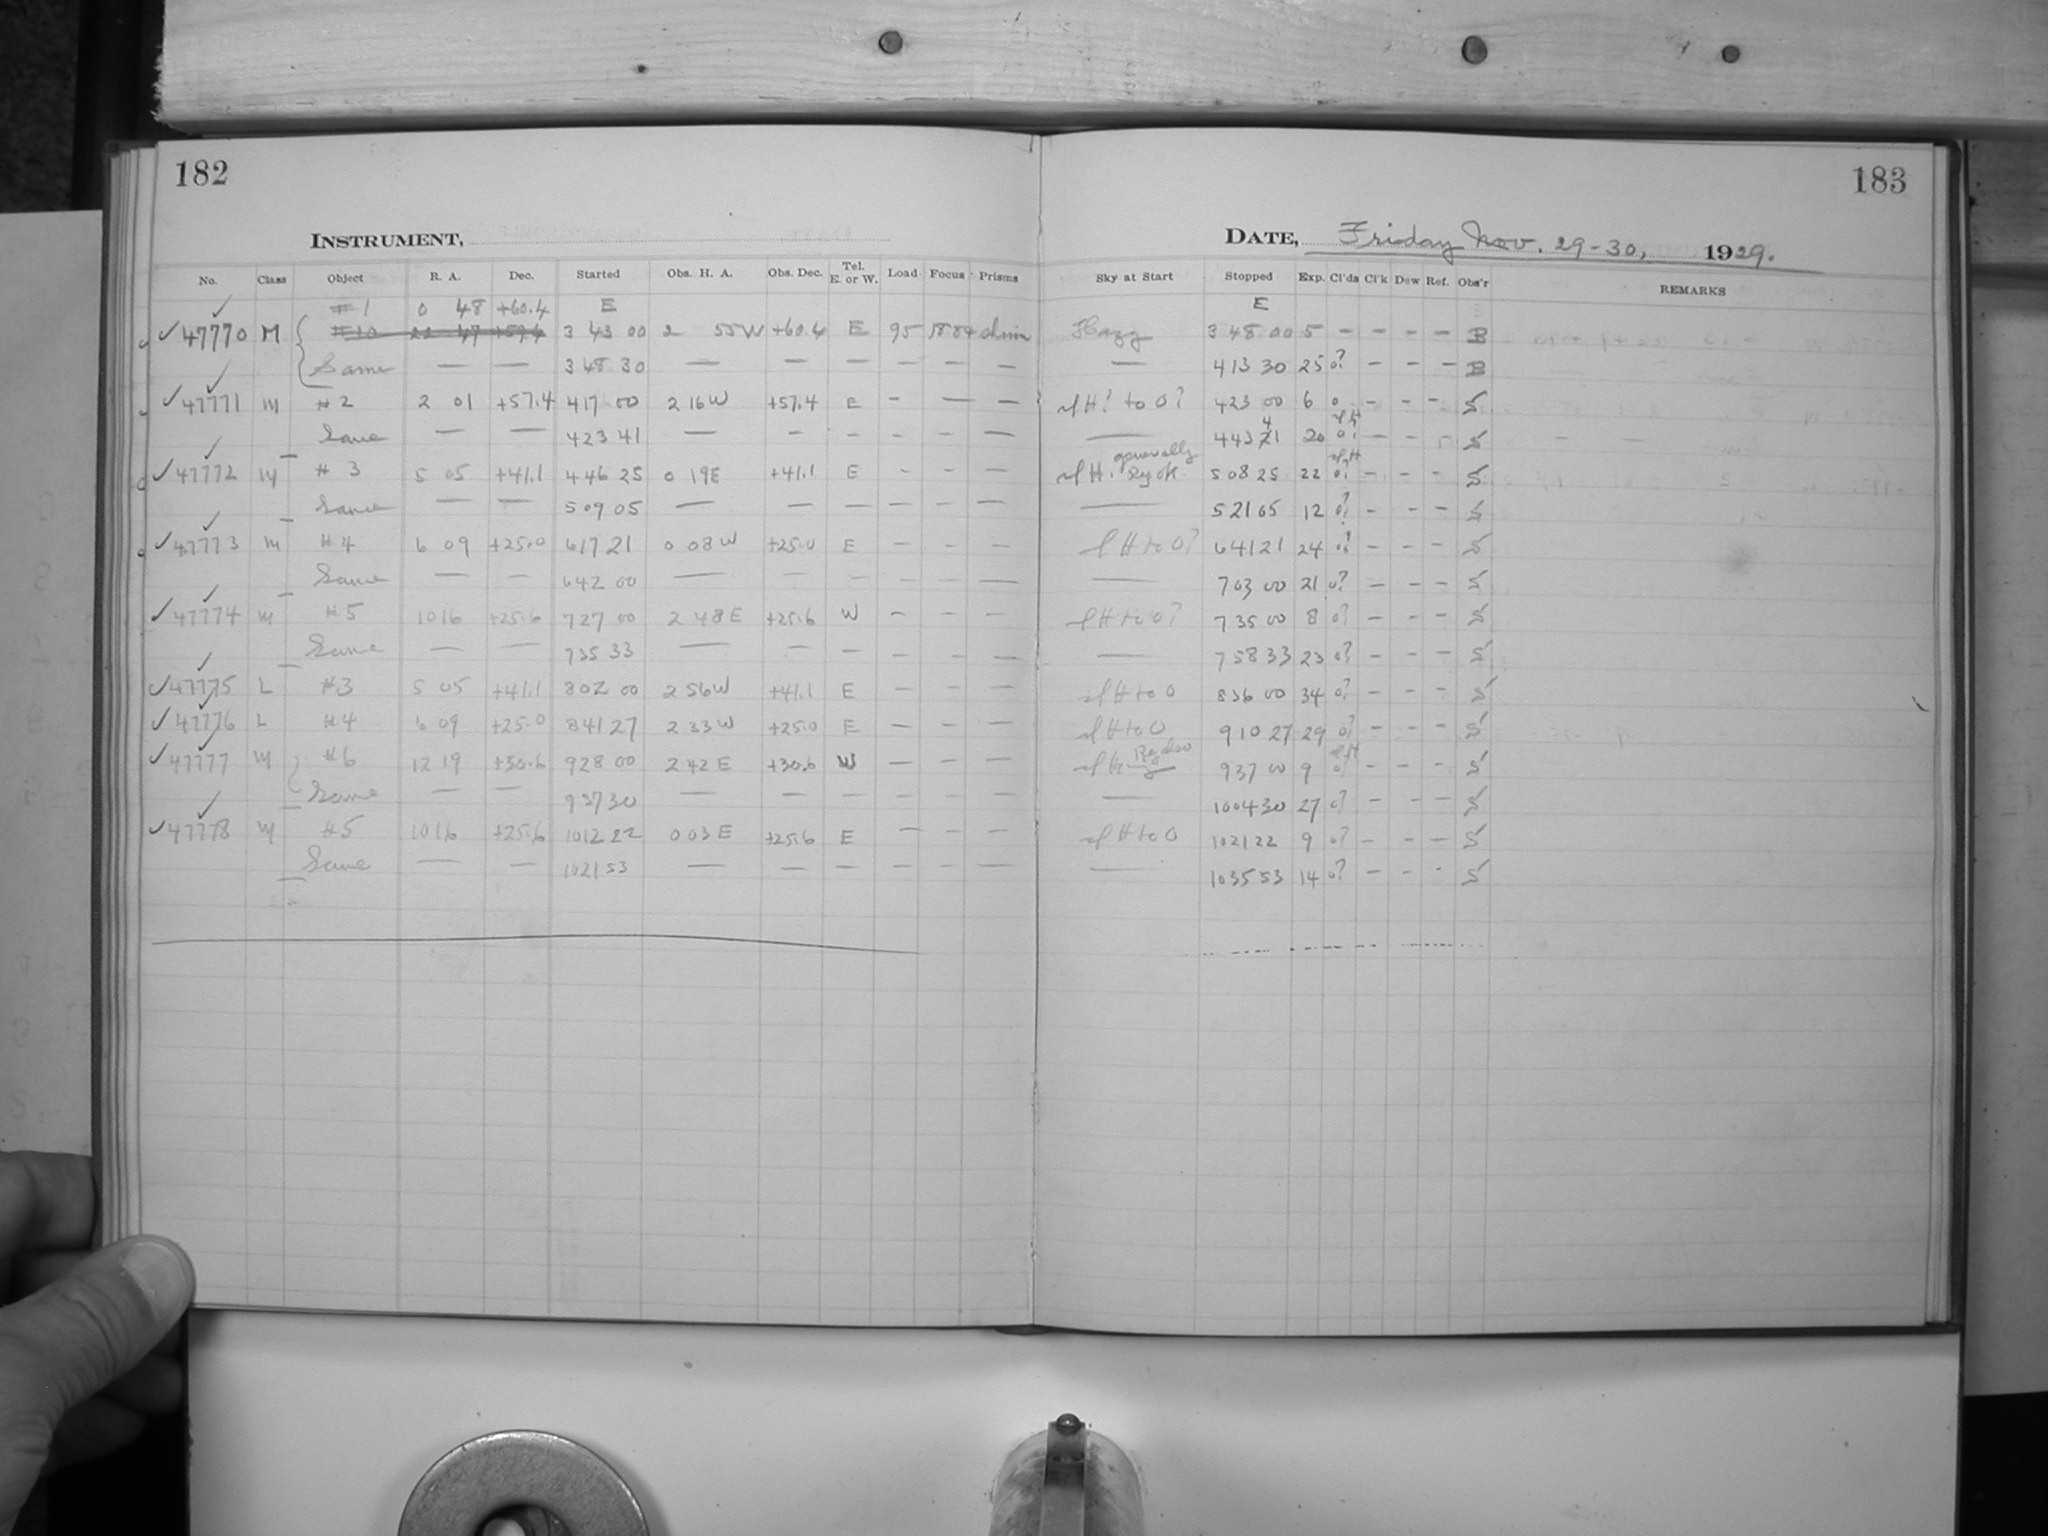 182
183
INSTRUMENT,
DATE, Friday Nov. 29-30, 1929.
No. Class Object R. A. Dec. Started Obs. H. A. Obs. Dec. Tel. E. or W. Load Focus Prisms Sky at Start Stopped Exp. Cl'ds Cl'k Dew Ref. Obs'r REMARKS
#1 0 48 +60.4 E E
✓ 47770 M #10 22 47 +59.4 3 43 00 2 55 W +60.4 E 95 Hazy 3 48 00 5 – – – – B
Same — — 3 48 30 — — – – – — — 4 13 30 25 0? – – – B
✓ 47771 M #2 2 01 +57.4 4 17 00 2 16 W +57.4 E – — — H? to 0? 4 23 00 6 0 – – – S
Same — — 4 23 41 — – – – – — — 20 – – – S
generally
✓ 47772 M # 3 5 05 +41.1 4 46 25 0 19 E +41.1 E – – – 5 08 25 22 0? – – – S
Same — — 5 09 05 — — – – – — — 5 21 05 12 0? – – – S
✓ 47773 M #4 6 09 +25.0 6 17 21 0 08 W +25.0 E – – – H to 0? 6 41 21 24 0? – – – S
Same — — 6 42 00 — – – – – — — 7 03 00 21 0? – – – S
✓ 47774 M #5 10 16 +25.6 7 27 00 2 48 E +25.6 W – – – H to 0? 7 35 00 8 0? – – – S
Same — — 7 35 33 — – – – – – — 7 58 33 23 0? – – – S
✓ 47775 L #3 5 05 +41.1 8 02 00 2 56 W +41.1 E – – – H to 0 8 36 00 34 0? – – – S
✓ 47776 L #4 6 09 +25.0 8 41 27 2 33 W +25.0 E – – – H to 0 9 10 27 29 0? – – – S
✓ 47777 M #6 12 19 +30.6 9 28 00 2 42 E +30.6 W – – – 9 37 00 9 – – – S
Same — — 9 37 30 — – – – – – — 10 04 30 27 0? – – – S
✓ 47778 M #5 10 16 +25.6 10 12 22 0 03 E +25.6 E – – – H to 0 10 21 22 9 0? – – – S
Same — — 10 21 53 — – – – – — — 10 35 53 14 0? – – – S